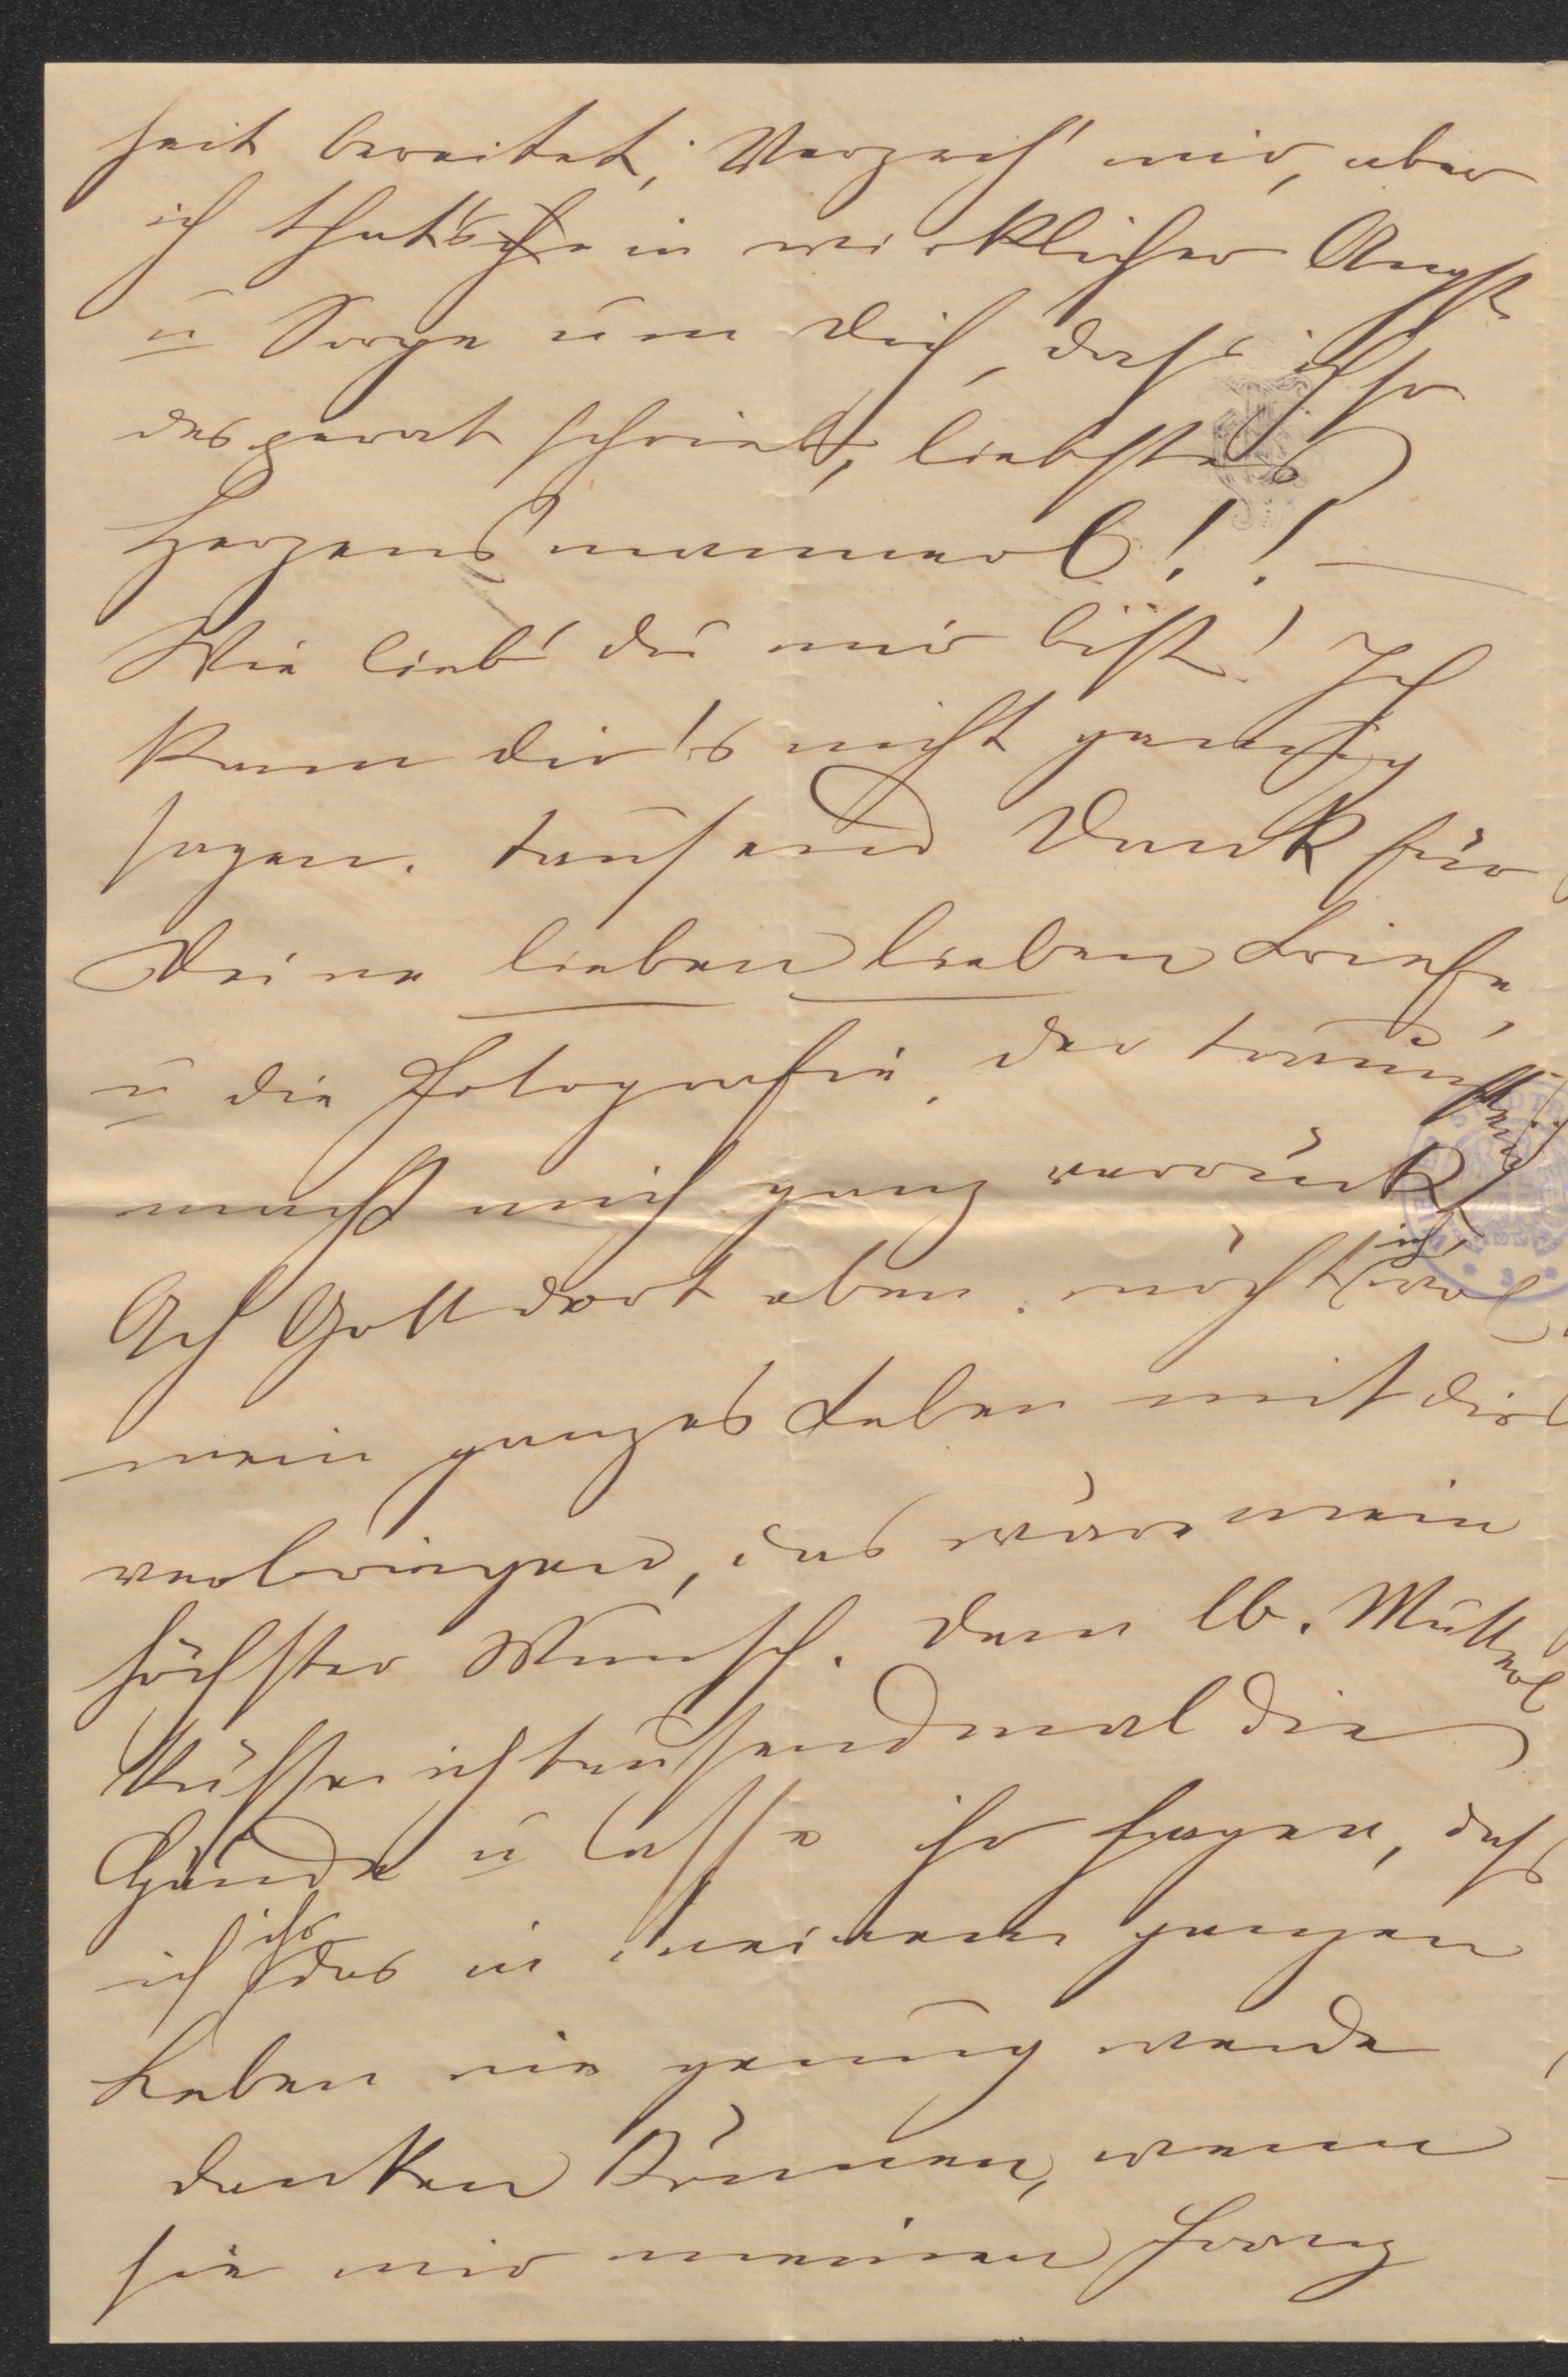 heit bereitet; Verzeih' mir, aber
ich that's in wirklicher Angst
u Sorge um dich, dass ich so
desperat schrieb, liebstes
Herzensmannerl!! —
Wie lieb' du mir bist! Ich
kann dir's nicht genug
sagen. tausend Dank für
Deine lieben lieben Briefe,
u die Fotografie. der Traunstein
macht mich ganz verrückt
Ach Gott dort oben möcht ich
mein ganzes Leben mit dir
verbringen, das wäre mein
höchster Wunsch. Dem lb. Mutterl
küsse ich tausendmal die
Hände u lasse ihr sagen, dass
ich ihr das in meinem ganzen
Leben nie genug werde
danken können, wenn
sie mir meinen Franz